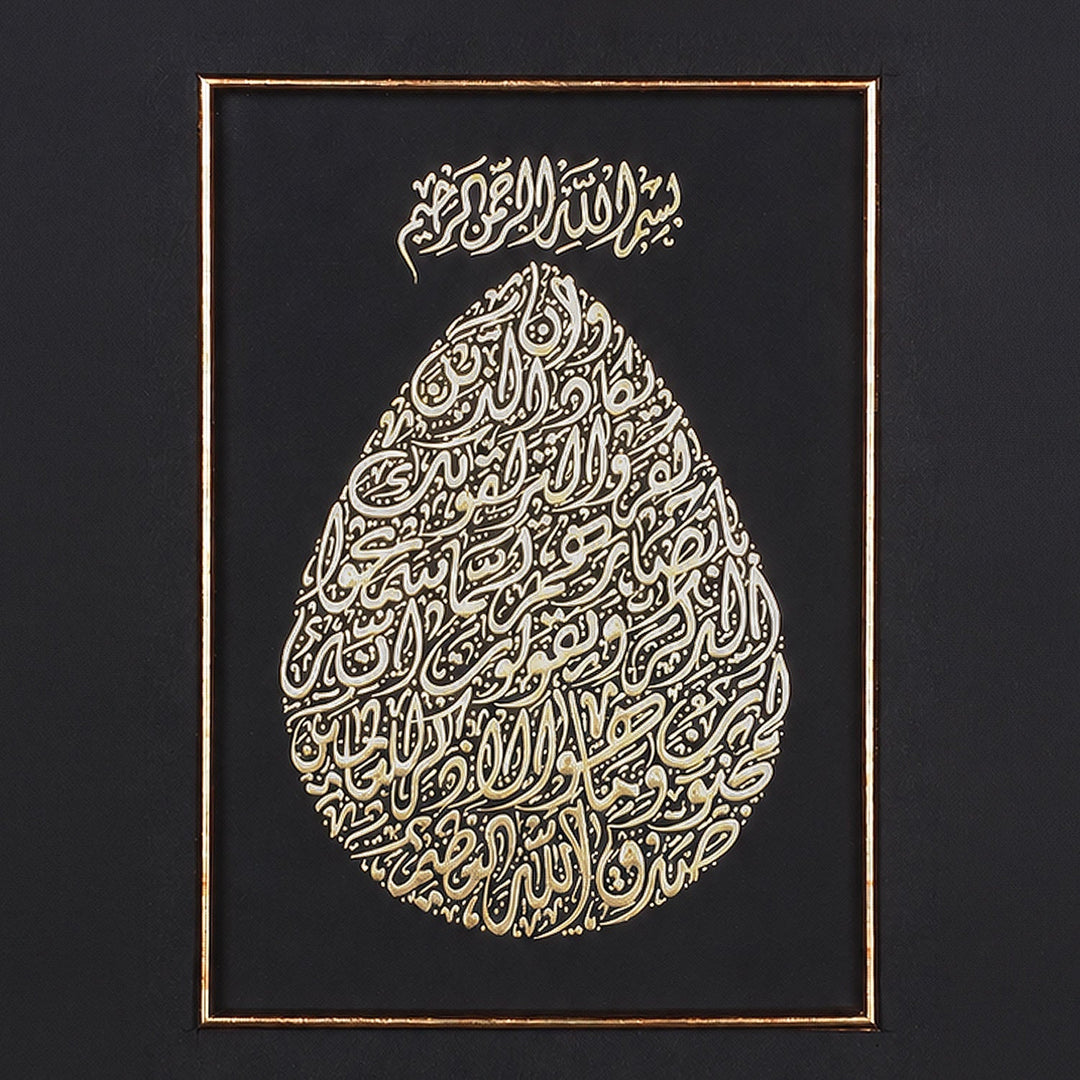 بسم الله الرحمن الرحيم
وان
يكاد الذين
كفروا ليزلقونك
بابصارهم لما سمعوا
الذكر ويقولون انه
لمجنون وما هو الا ذكر للعالمين
صدق الله العظيم